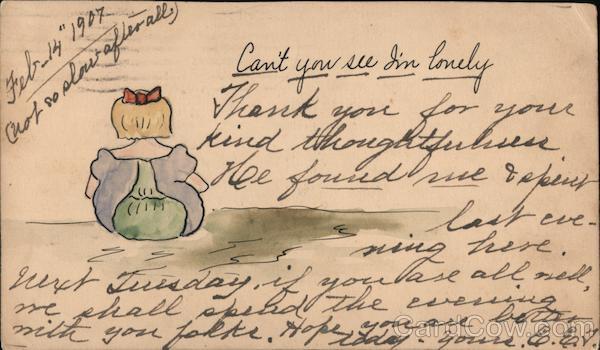 Feb-14" 1907
(not so slow after all)
Can't you see I'm lonely
Thank you for your
kind thoughtfulness
He found me & spent
last eve-
ning here.
Next Tuesday, if you are all well,
we shall spend the evening
with you folks. Hope you are better
today yours. E.E.V.
CardCow.com